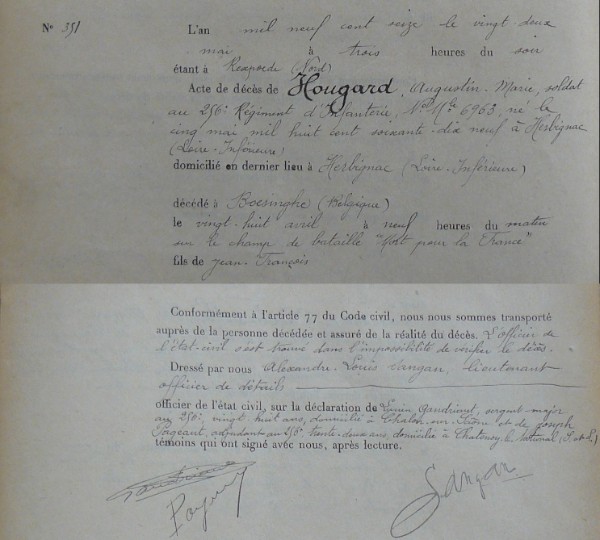 N° 351
L'an mil neuf cent seize le vingt deux
mai à trois heures du soir
étant à Rexpoede (Nord)
Acte de décès de Hougard, Augustin-Marie, soldat
au 256e Régiment d'Infanterie, N° Mle 6963, né le
cinq mai mil huit cent soixante-dix neuf à Herbignac
(Loire-Inférieure)
domicilié en dernier lieu à Herbignac (Loire-Inférieure)
décédé à Boesinghe (Belgique)
le vingt-huit avril à neuf heures du matin
sur le champ de bataille "Mort pour la France"
fils de Jean-François
Conformément à l'article 77 du Code civil, nous nous sommes transporté
auprès de la personne décédée et assuré de la réalité du décès. L'officier de
l'état-civil s'est trouvé dans l'impossibilité de vérifier le décès.
Dressé par nous Alexandre-Louis Sangan, lieutenant
officier de détails
officier de l'état civil, sur la déclaration de sergent-major
au 256e, vingt huit ans, domicilié à Chalon-sur-Saône et de Joseph
adjudant au 256e trente-deux ans, domicilié à (S.-et-L.)
témoins qui ont signé avec nous, après lecture.
Sangan